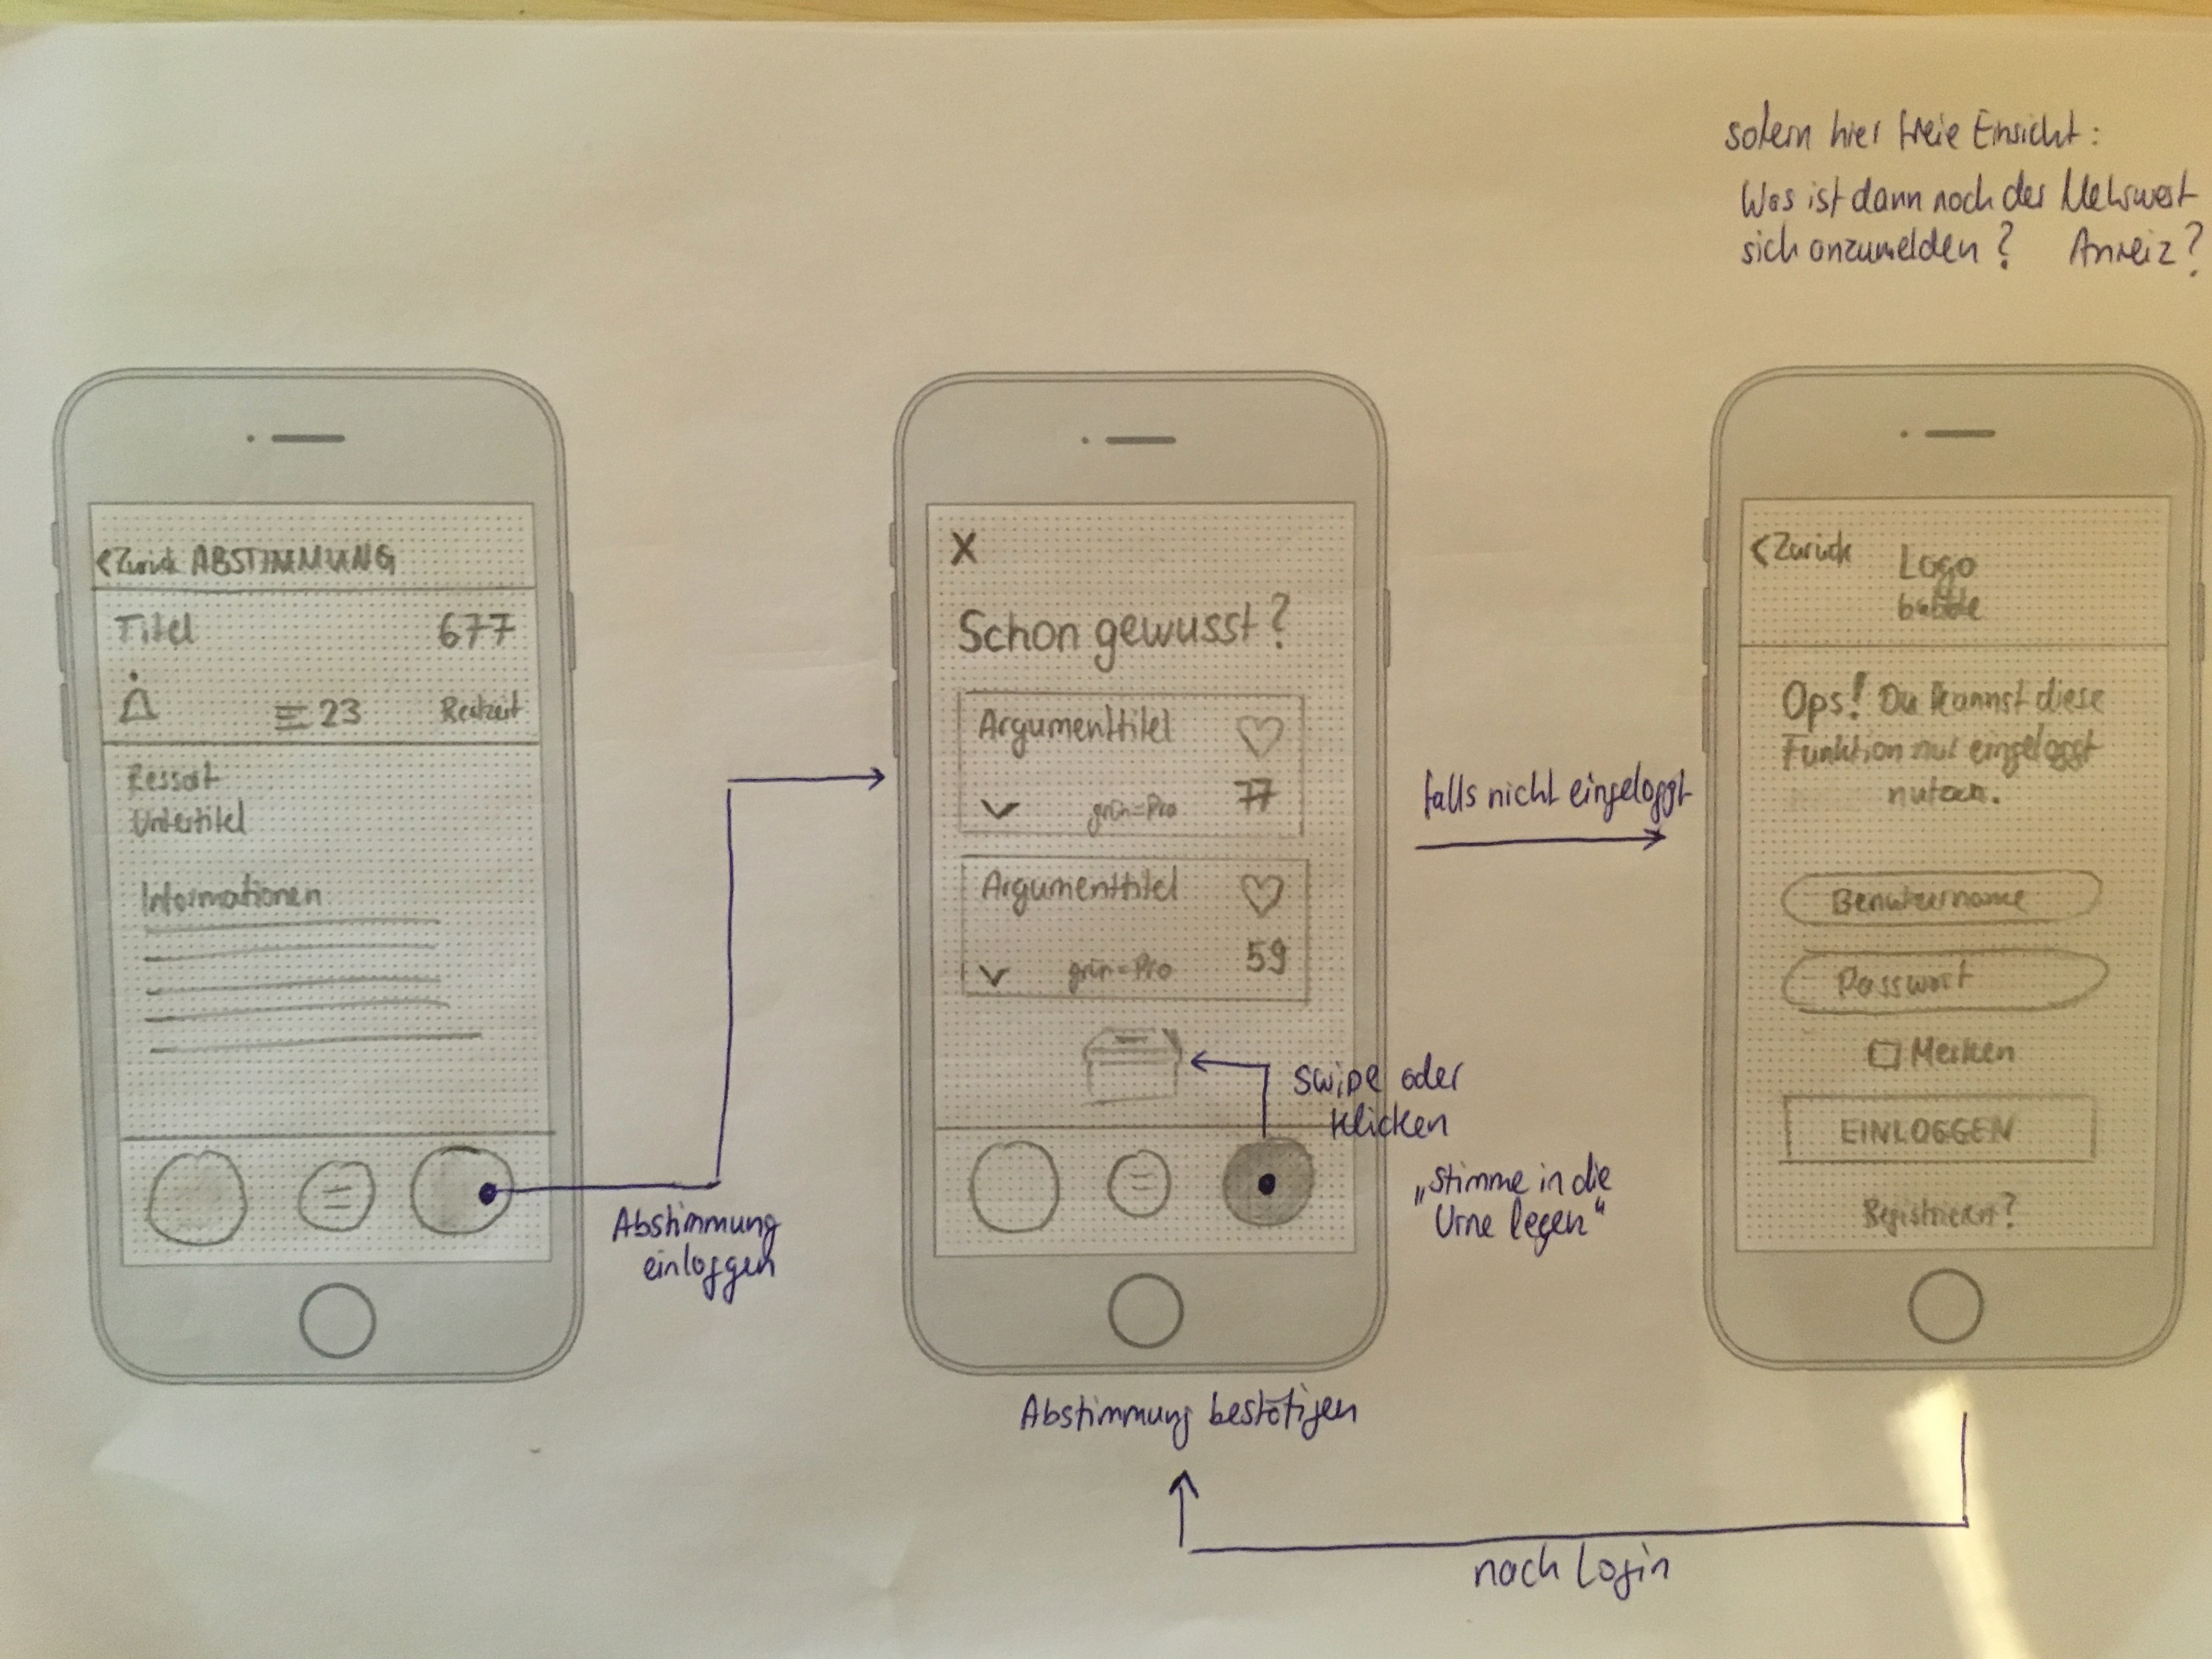 sofern hier freie Einsicht:
Was ist dann noch der Mehrwert
sich anzumelden? Anreiz?
<Zurück ABSTIMMUNG
Titel 677
23 Restzeit
Ressort
Untertitel
Informationen
Abstimmung
einloggen
X
Schon gewusst?
Argumenttitel
grün=Pro 77
Argumenttitel
grün=Pro 59
swipe oder
klicken
„Stimme in die
Urne legen“
Abstimmung bestätigen
falls nicht eingeloggt
<Zurück Logo
Ops! Du kannst diese
Funktion nur eingeloggt
nutzen.
Benutzername
Passwort
Merken
EINLOGGEN
Registrieren?
nach Login